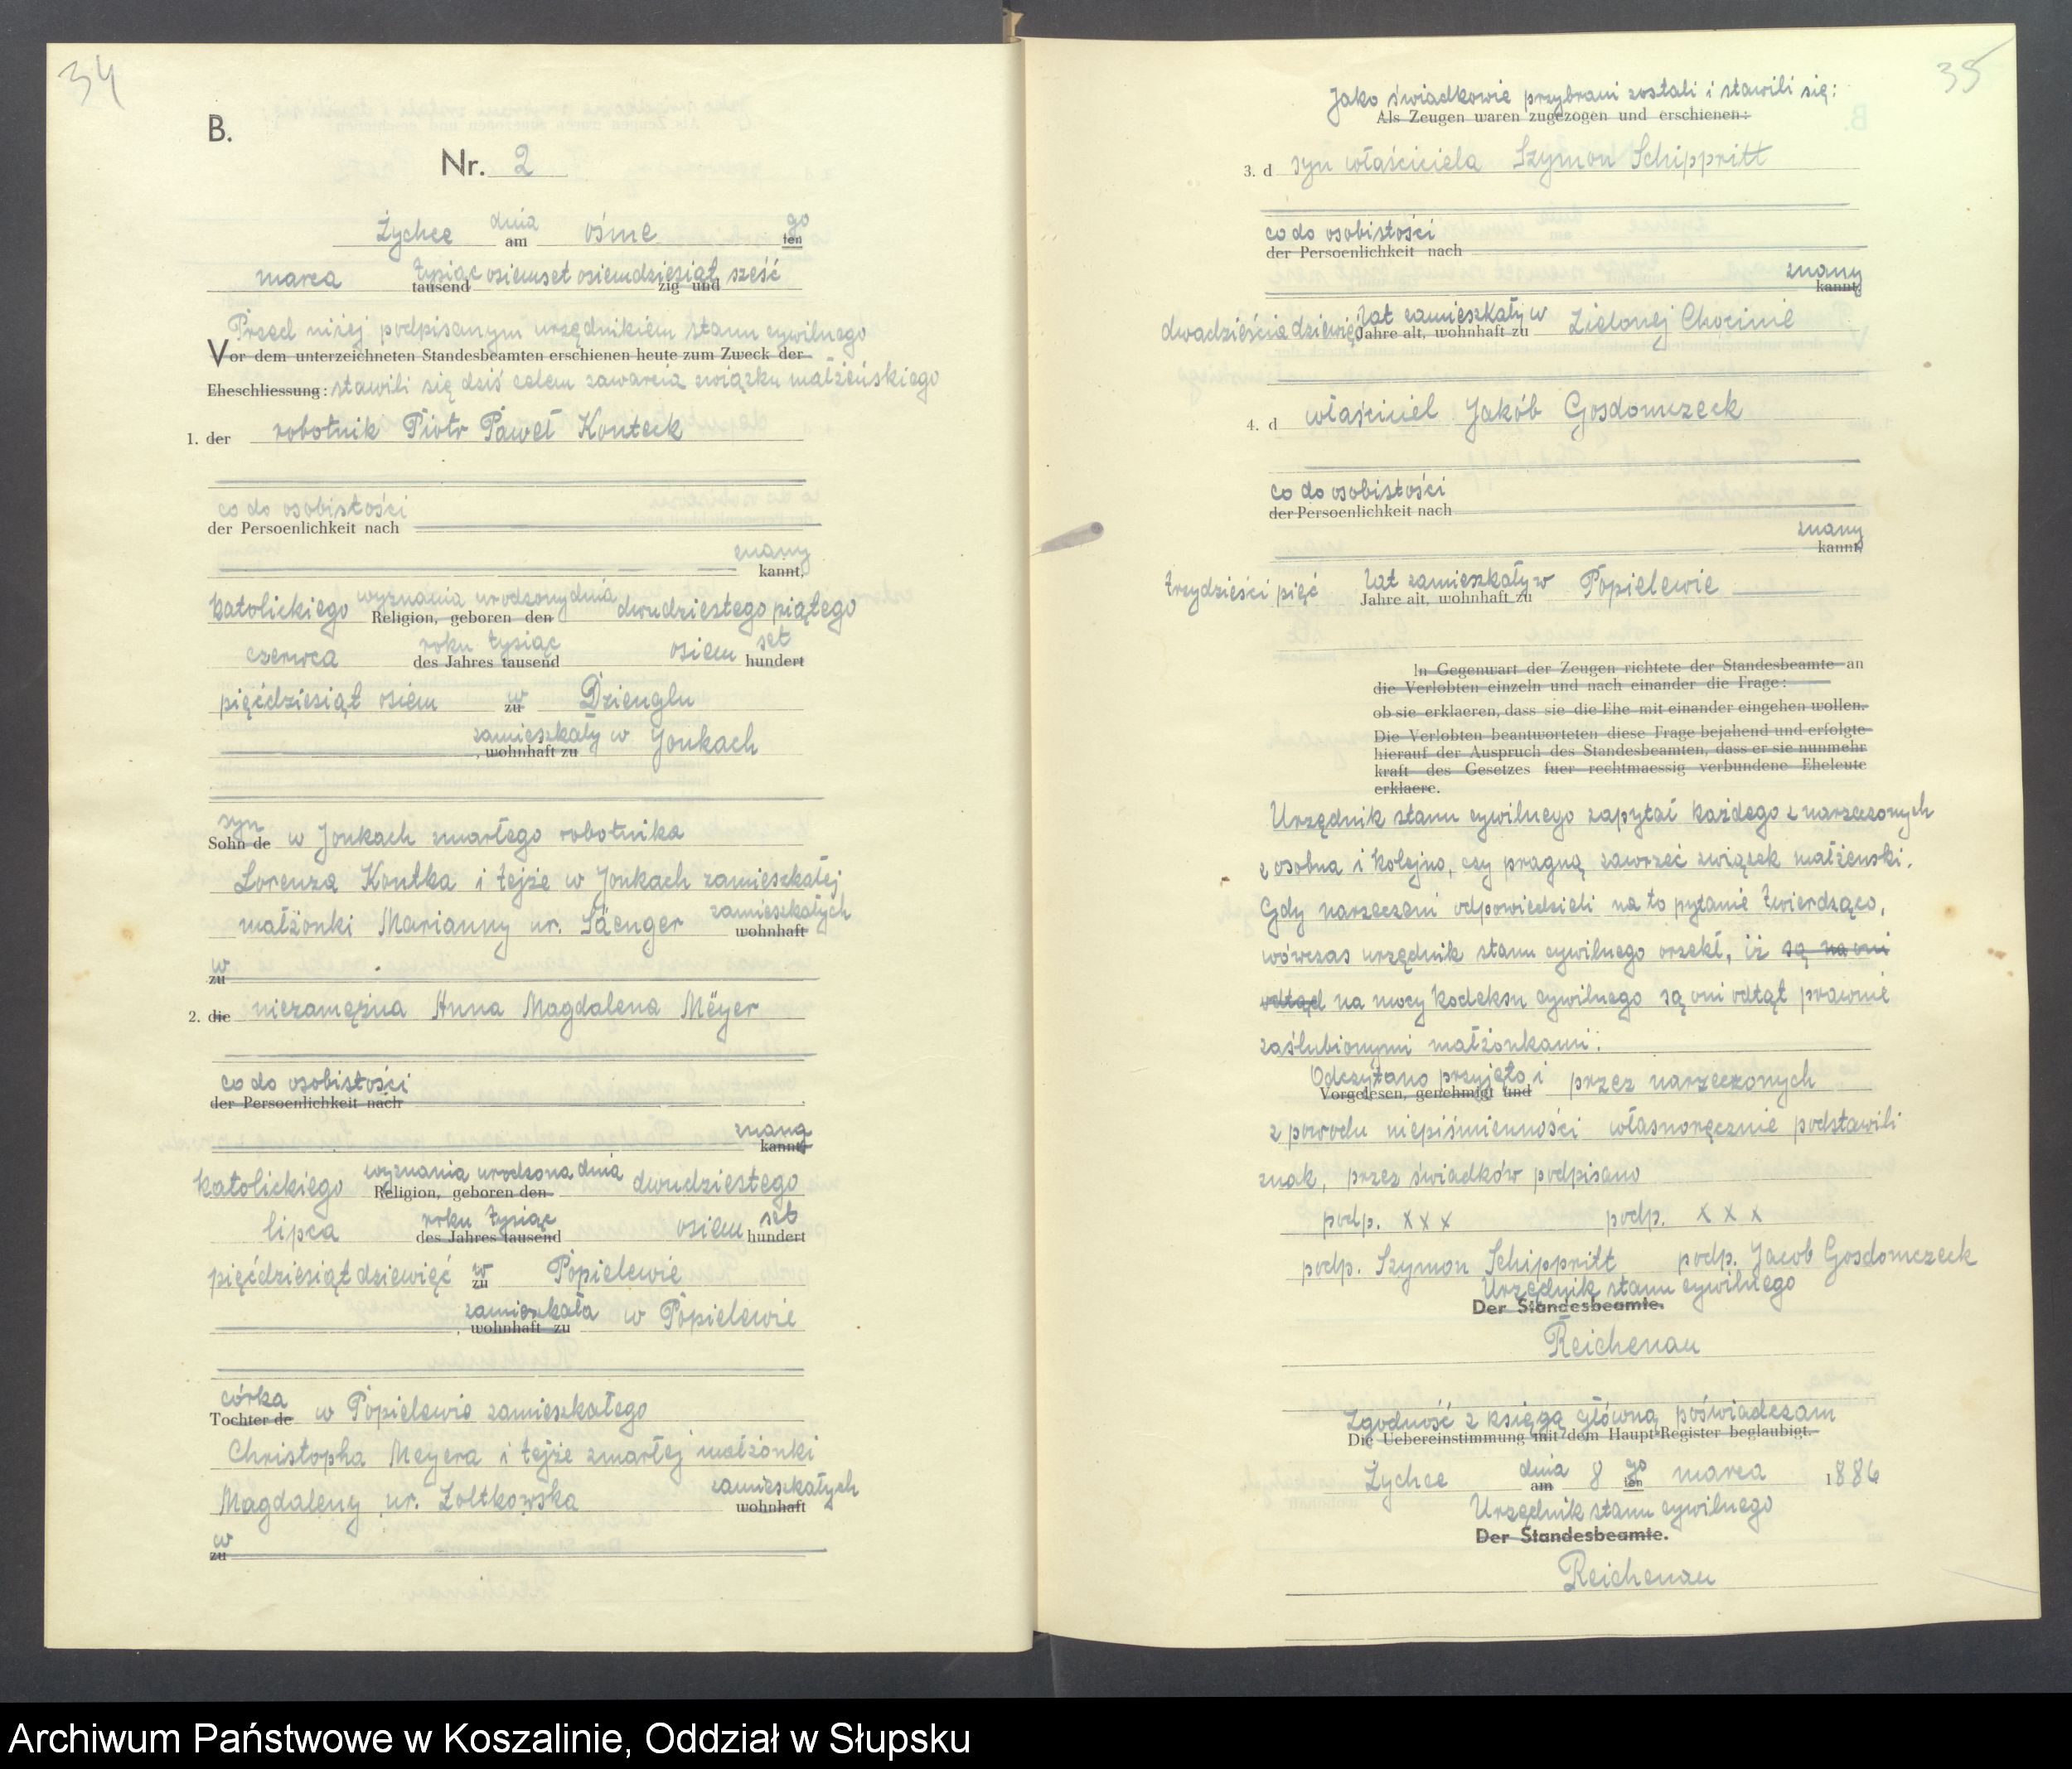 34
B.
Nr. 2
Żychce dnia am ósme go ten
marca tysiąc tausend osiemset osiemdziesiąt zig und sześć
Przed niżej podpisanym urzędnikiem stanu cywilnego
Vor dem unterzeichneten Standesbeamten erschienen heute zum Zweck der
Eheschliessung: stawili się dziś celem zawarcia związku małżeńskiego
1. der robotnik Piotr Paweł Konteck
co do osobistości
der Persoenlichkeit nach
znany
kannt,
katolickiego wyznania urodzony dnia dwudziestego piątego
Religion, geboren den
czerwca roku tysiąc osiem set
des Jahres tausend hundert
pięćdziesiąt osiem w zu Dzienglu
zamieszkały w Jonkach
, wohnhaft zu
syn
Sohn de w Jonkach zmarłego robotnika
Lorenza Kontka i tejże w Jonkach zamieszkałej
małżonki Marianny ur. Säenger zamieszkałych
wohnhaft
w
zu
2. die niezamężna Anna Magdalena Mëyer
co do osobistości
der Persoenlichkeit nach
znana
kannt,
katolickiego wyznania urodzona dnia dwudziestego
Religion, geboren den
lipca roku tysiąc osiem set
des Jahres tausend hundert
pięćdziesiąt dziewięć w zu Popielewie
zamieszkała w Popielewie
, wohnhaft zu
córka
Tochter de w Popielewie zamieszkałego
Christopha Meyera i tejże zmarłej małżonki
Magdaleny ur. Zoltkowska zamieszkałych
wohnhaft
w
zu
35
Jako świadkowie przybrani zostali i stawili się:
Als Zeugen waren zugezogen und erschienen:
3. d syn właściciela Szymon Schippritt
co do osobistości
der Persoenlichkeit nach
znany
kannt,
dwadzieścia dziewięć lat zamieszkały w Zielonej Chocinie
Jahre alt, wohnhaft zu
4. d właściciel Jakób Gosdomczeck
co do osobistości
der Persoenlichkeit nach
znany
kannt,
trzydzieści pięć lat zamieszkały w Popielewie
Jahre alt, wohnhaft zu
In Gegenwart der Zeugen richtete der Standesbeamte an
die Verlobten einzeln und nach einander die Frage:
ob sie erklaeren, dass sie die Ehe mit einander eingehen wollen.
Die Verlobten beantworteten diese Frage bejahend und erfolgte
hierauf der Auspruch des Standesbeamten, dass er sie nunmehr
kraft des Gesetzes fuer rechtmaessig verbundene Eheleute
erklaere.
Urzędnik stanu cywilnego zapytał każdego z narzeczonych
z osobna i kolejno, czy pragną zawrzeć związek małżeński.
Gdy narzeczeni odpowiedzieli na to pytanie twierdząco,
wówczas urzędnik stanu cywilnego orzekł, iż są na oni
odtąd na mocy kodeksu cywilnego są oni odtąt prawnie
zaślubionymi małżonkami.
Odczytano przyjęto i przez narzeczonych
Vorgelesen, genehmigt und
z powodu niepiśmienności własnoręcznie podstawili
znak, przez świadków podpisano
podp. x x x podp. x x x
podp. Szymon Schippritt podp. Jacob Gosdomczeck
Urzędnik stanu cywilnego
Der Standesbeamte.
Reichenau
Zgodność z księgą główną poświadczam
Die Uebereinstimmung mit dem Haupt-Register beglaubigt.
Żychce dnia am 8 go ten marca 1886
Urzędnik stanu cywilnego
Der Standesbeamte.
Reichenau
Archiwum Państwowe w Koszalinie, Oddział w Słupsku